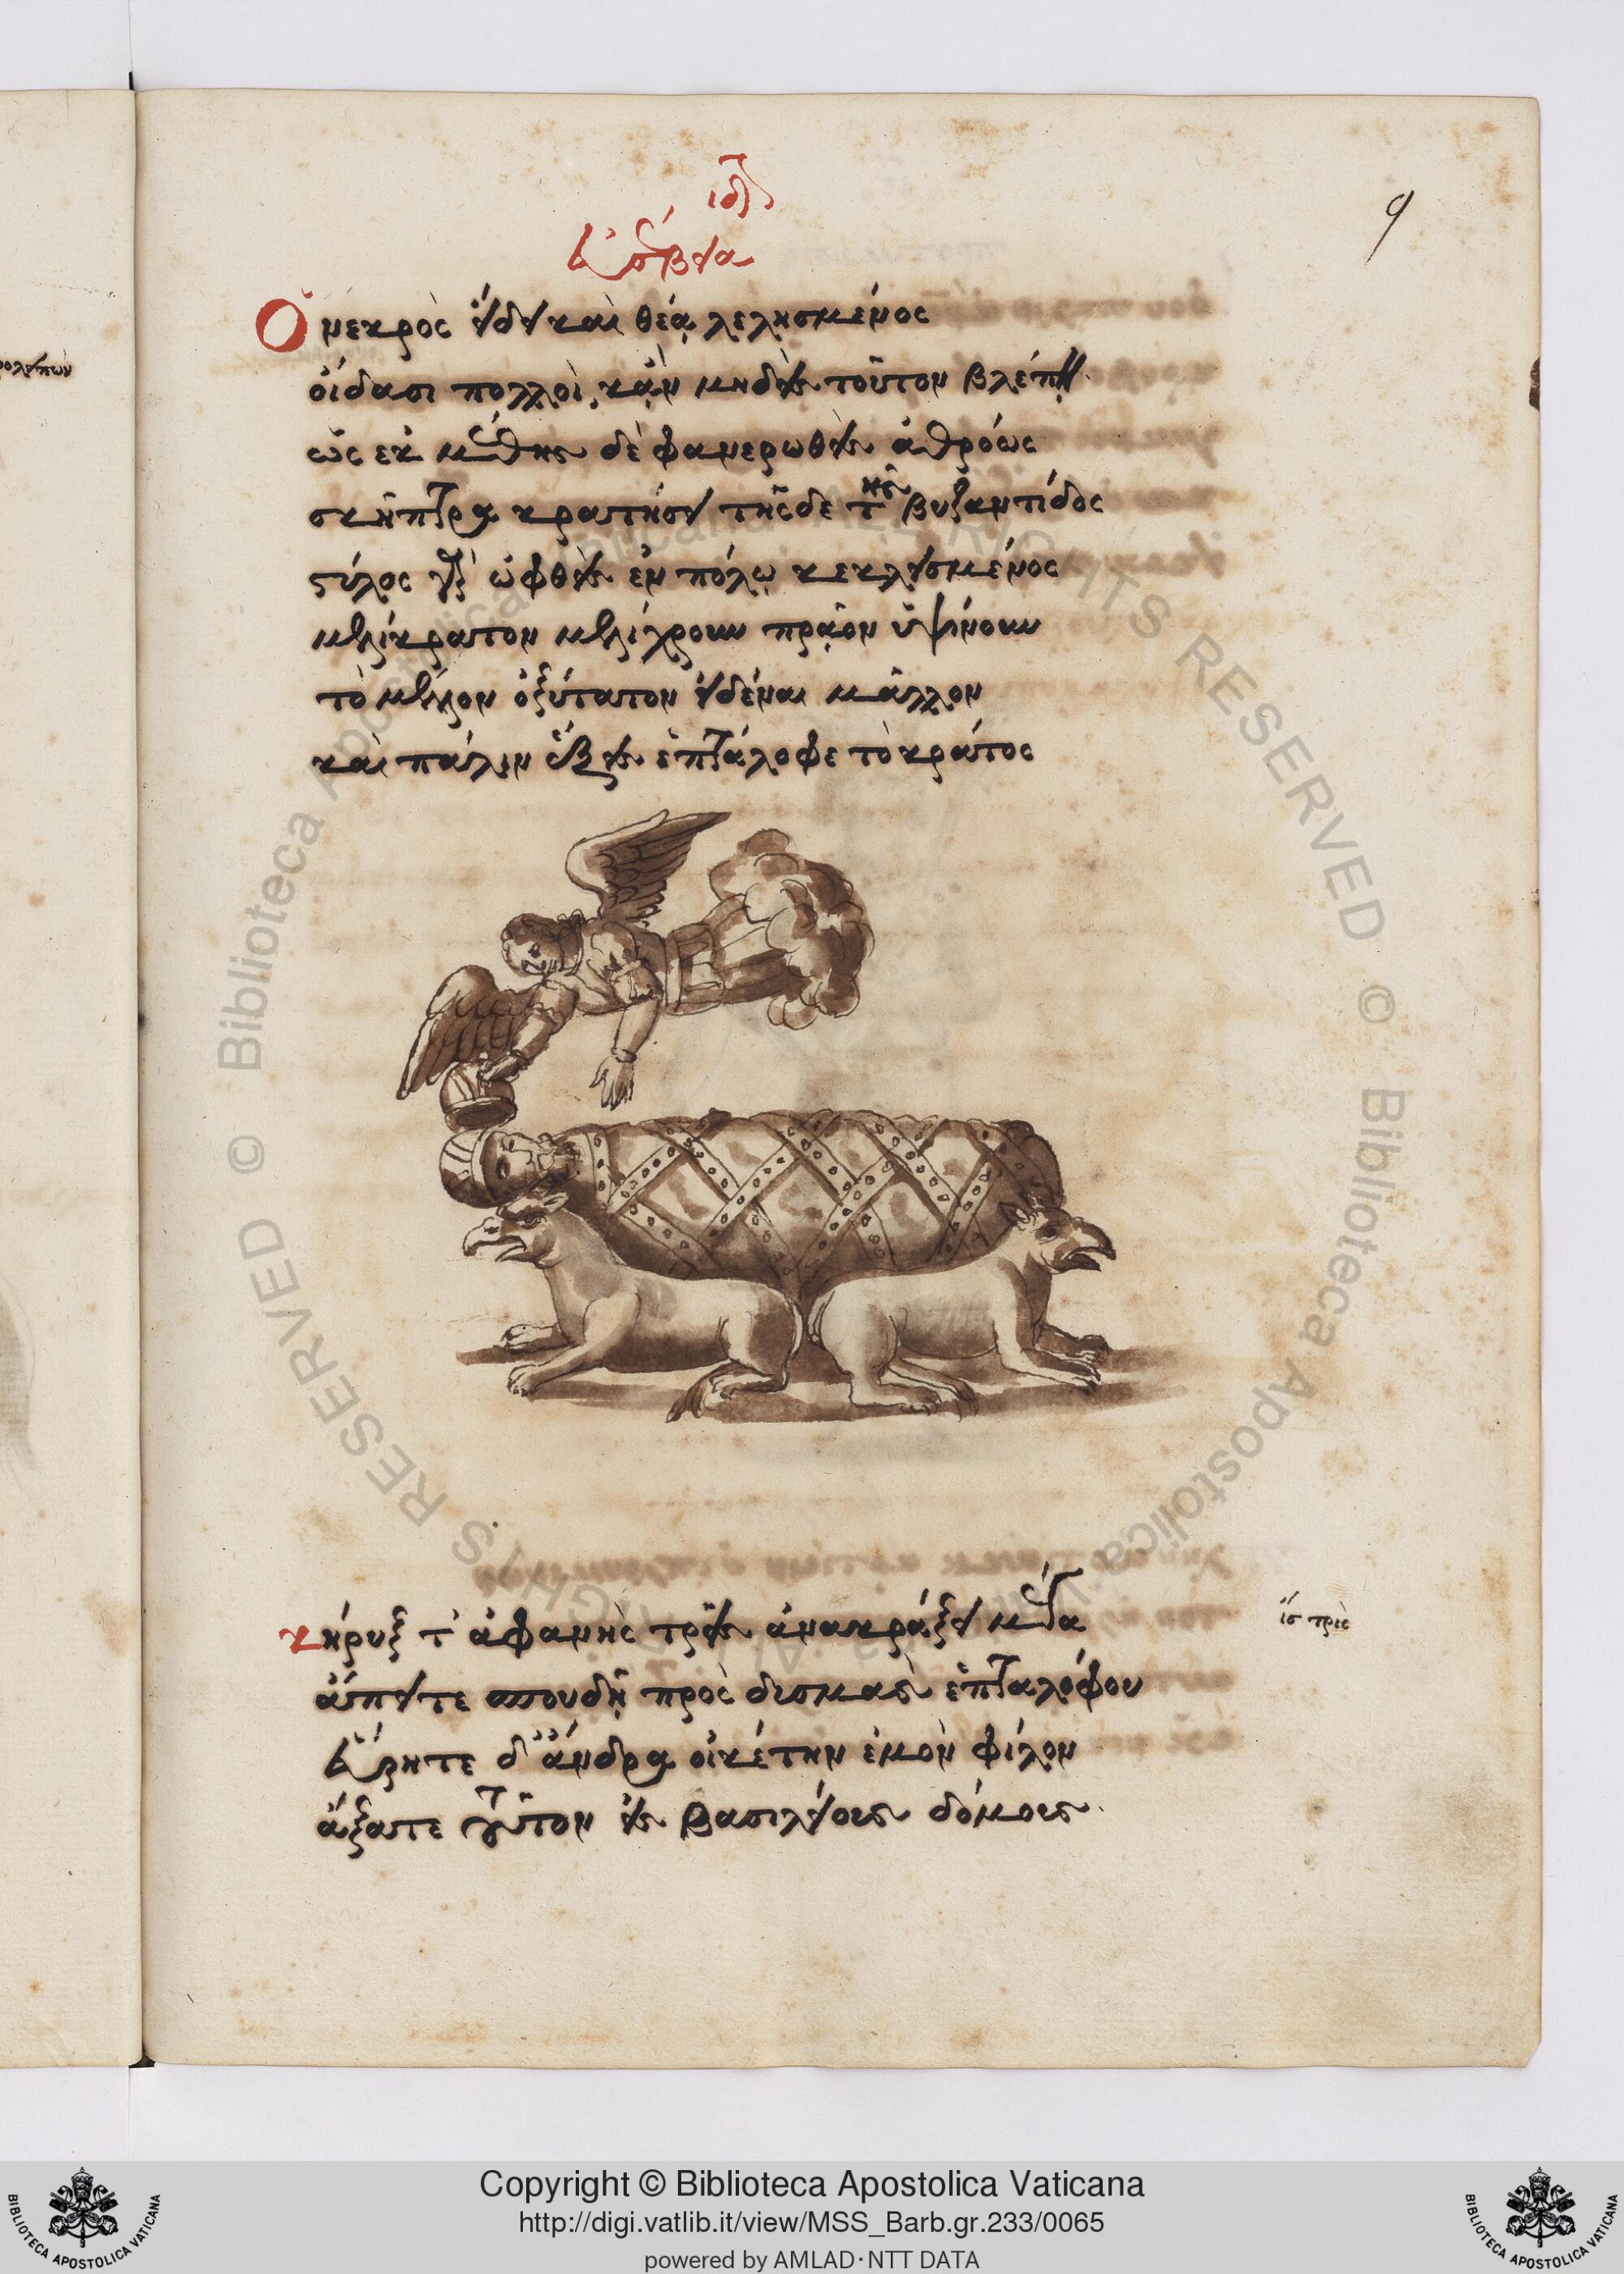 ιδ
εὐσέβεια
9
Ὁ νεκρὸς ἤδη καὶ θέᾳ λελησμένος
οἴδασι πολλοὶ, κἂν μηδεὶς τοῦτον βλέπῃ
ὡς ἐκ μέθης δὲ φανερωθεὶς ἀθρόως
σκῆπτρα κρατήσει τῆςδε τῆς βυζαντίδος
στύλος γὰρ ὤφθη ἐν πόλῳ κεκλεισμένος
πρᾷον
τὸ ὀξύτατον εἰδέναι μᾶλλον
καὶ πάλιν ἕξεις ἑπτάλοφε τὸ κράτος
κήρυξ τ' ἀφανὴς τρεῖς ἀνακράξει μέγα
ἄπιτε σπουδῇ πρὸς δυσμὰς ἑπταλόφου
εὕρητε δ' ἄνδρα οἰκέτην ἐμὸν φίλον
ἄξατε τοῦτον εἰς βασιλείους δόμους
ἴσ τρὶς
ALL RIGHTS RESERVED © Biblioteca Apostolica Vaticana
Copyright © Biblioteca Apostolica Vaticana
http://digi.vatlib.it/view/MSS_Barb.gr.233/0065
powered by AMLAD·NTT DATA
BIBLIOTECA APOSTOLICA VATICANA
BIBLIOTECA APOSTOLICA VATICANA